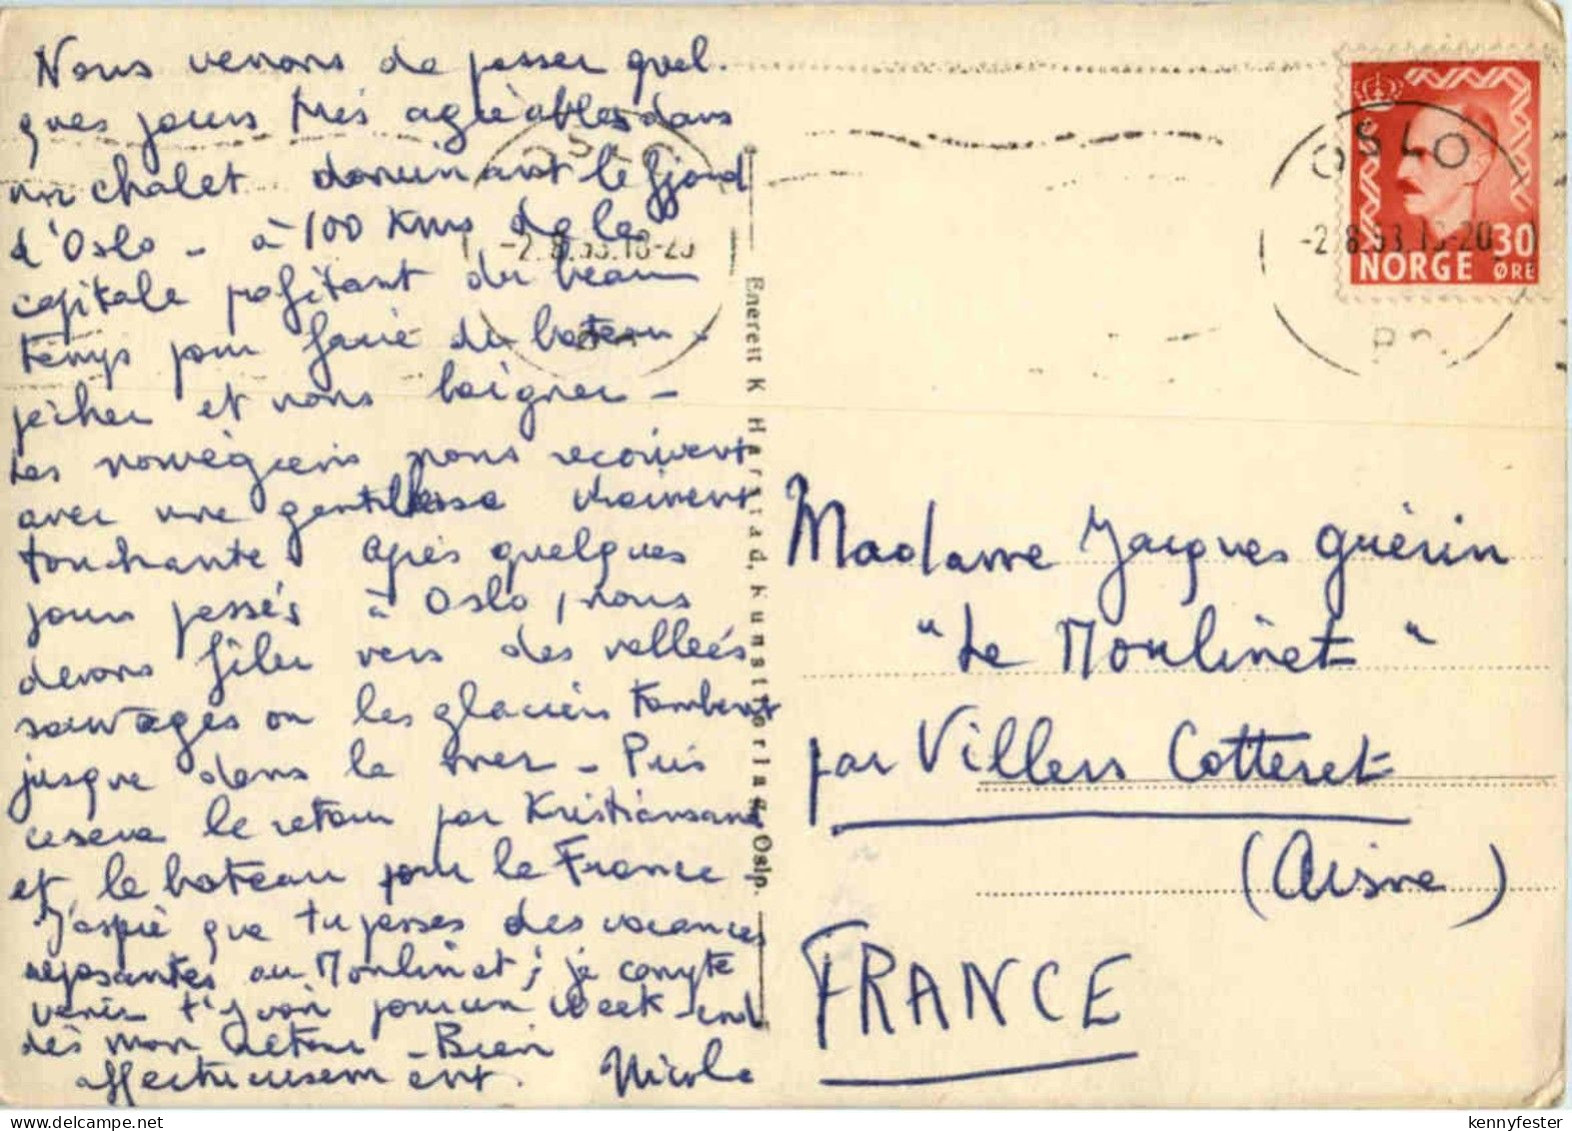 Nous venons de passer quel-
ques jours très agréables dans
un chalet dominant le fjord
d'Oslo - à 100 Kms de la
capitale profitant du beau
temps pour faire du bateau -
pêcher et nous baigner -
Les norvégiens nous reçoivent
avec une gentillesse vraiment
touchante. Après quelques
jours passés à Oslo, nous
devons filer vers des vallées
sauvages ou les glaciers tombent
jusque dans la mer - Puis
ce sera le retour par Kristiansand
et le bateau pour la France
J'espère que tu passes des vacances
reposantes au Moulinet ; je compte
venir t'y voir pour un week-end
dès mon retour - Bien
affectueusement. Nicole
OSLO
-2.8.53.18-20
Enerett K. Harstad, Kunstforlag, Oslo.
OSLO
-2.8.53.18-20
NORGE 30 ØRE
Madame Jacques Guérin
"Le Moulinet"
par Villers Cotteret
(Aisne)
FRANCE
kennyfester